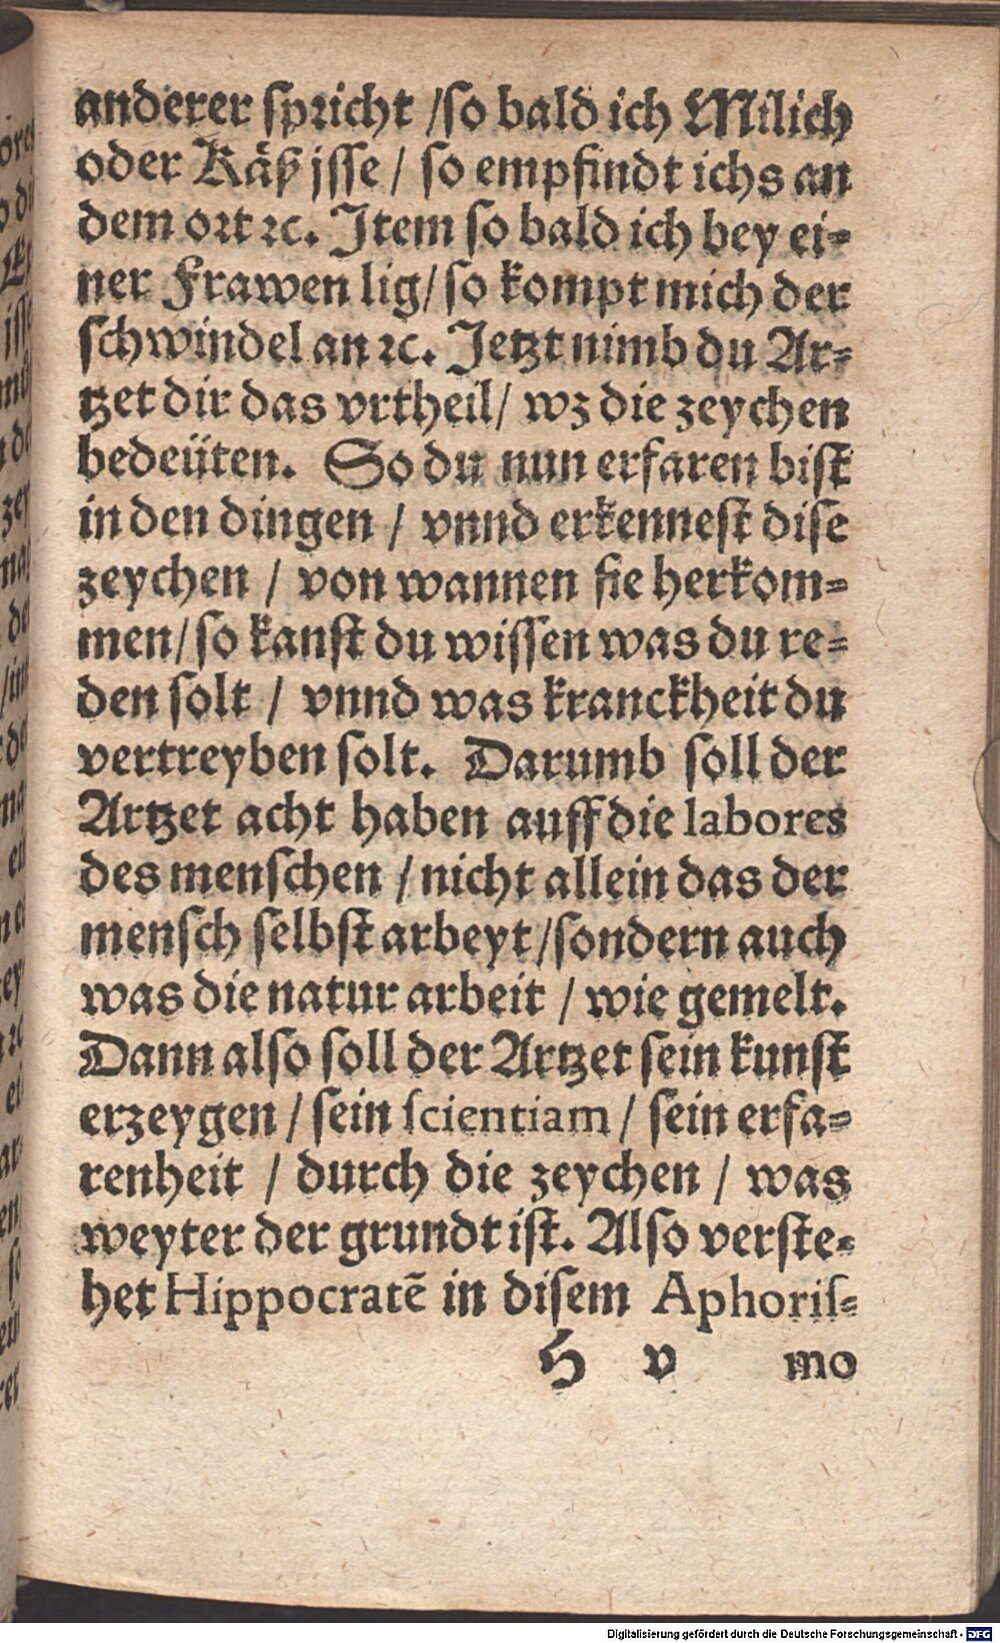 anderer spricht /so bald ich Milich
oder Käß jsse / so empfindt ichs an
dem ort ꝛc. Item so bald ich bey ei-
ner Frawen lig/so kompt mich der
schwindel an ꝛc. Jetzt nimb du Ar-
tzet dir das vrtheil/ wz die zeychen
bedeüten. So du nun erfaren bist
in den dingen / vnnd erkennest dise
zeychen / von wannen sie herkom-
men/so kanst du wissen was du re-
den solt / vnnd was kranckheit du
vertreyben solt. Darumb soll der
Artzet acht haben auff die labores
des menschen /nicht allein das der
mensch selbst arbeyt/sondern auch
was die natur arbeit / wie gemelt.
Dann also soll der Artzet sein kunst
erzeygen / sein scientiam / sein erfa-
renheit / durch die zeychen / was
weyter der grundt ist. Also verste-
het Hippocratē in disem Aphoris-
H v mo
Digitalisierung gefördert durch die Deutsche Forschungsgemeinschaft - DFG